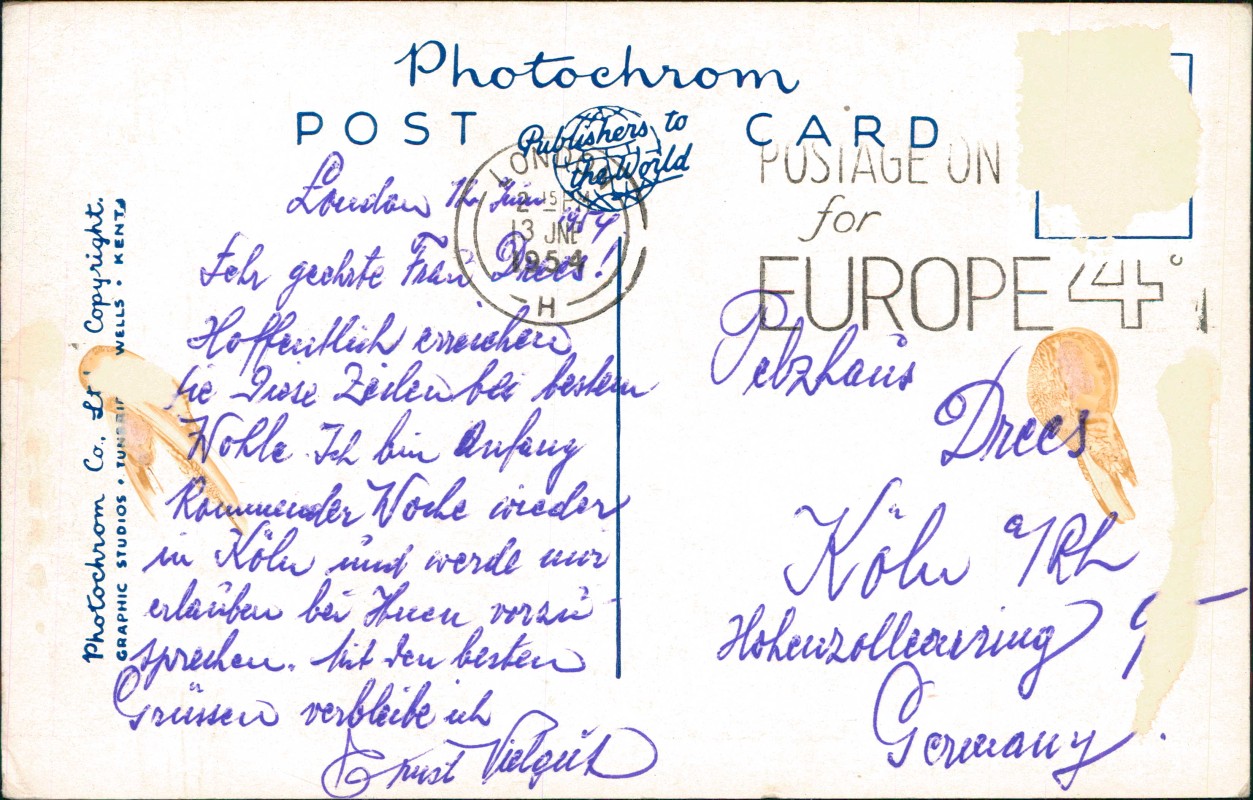 Photochrom
POST CARD
Publishers to
the World
LONDON
2 15 PM
13 JNE
1954
H
POSTAGE ON
for
EUROPE 4
Photochrom Co., Ltd Copyright.
GRAPHIC STUDIOS • TUNBRIDGE WELLS • KENT
London 12. Juni
1954
Sehr geehrte Frau Drees!
Hoffentlich erreichen
Sie Diese Zeilen bei bestem
Wohle. Ich bin Anfang
Kommender Woche wieder
in Köln und werde mir
erlauben bei Ihnen vorzu-
sprechen. Mit den besten
Grüssen verbleibe ich
Ernst
Pelzhaus
Drees
Köln a/Rh
Hohenzollernring
Germany.